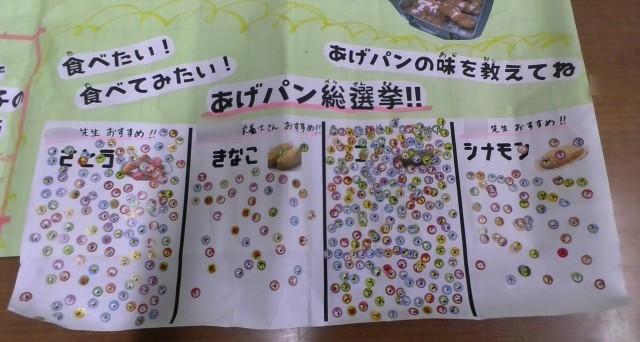 食べたい!
食べてみたい!
あげパンの味を教えてね
あげパン総選挙!!
先生 おすすめ!!
栄養士さん おすすめ!!
先生 おすすめ!!
さとう
きなこ
シナモン